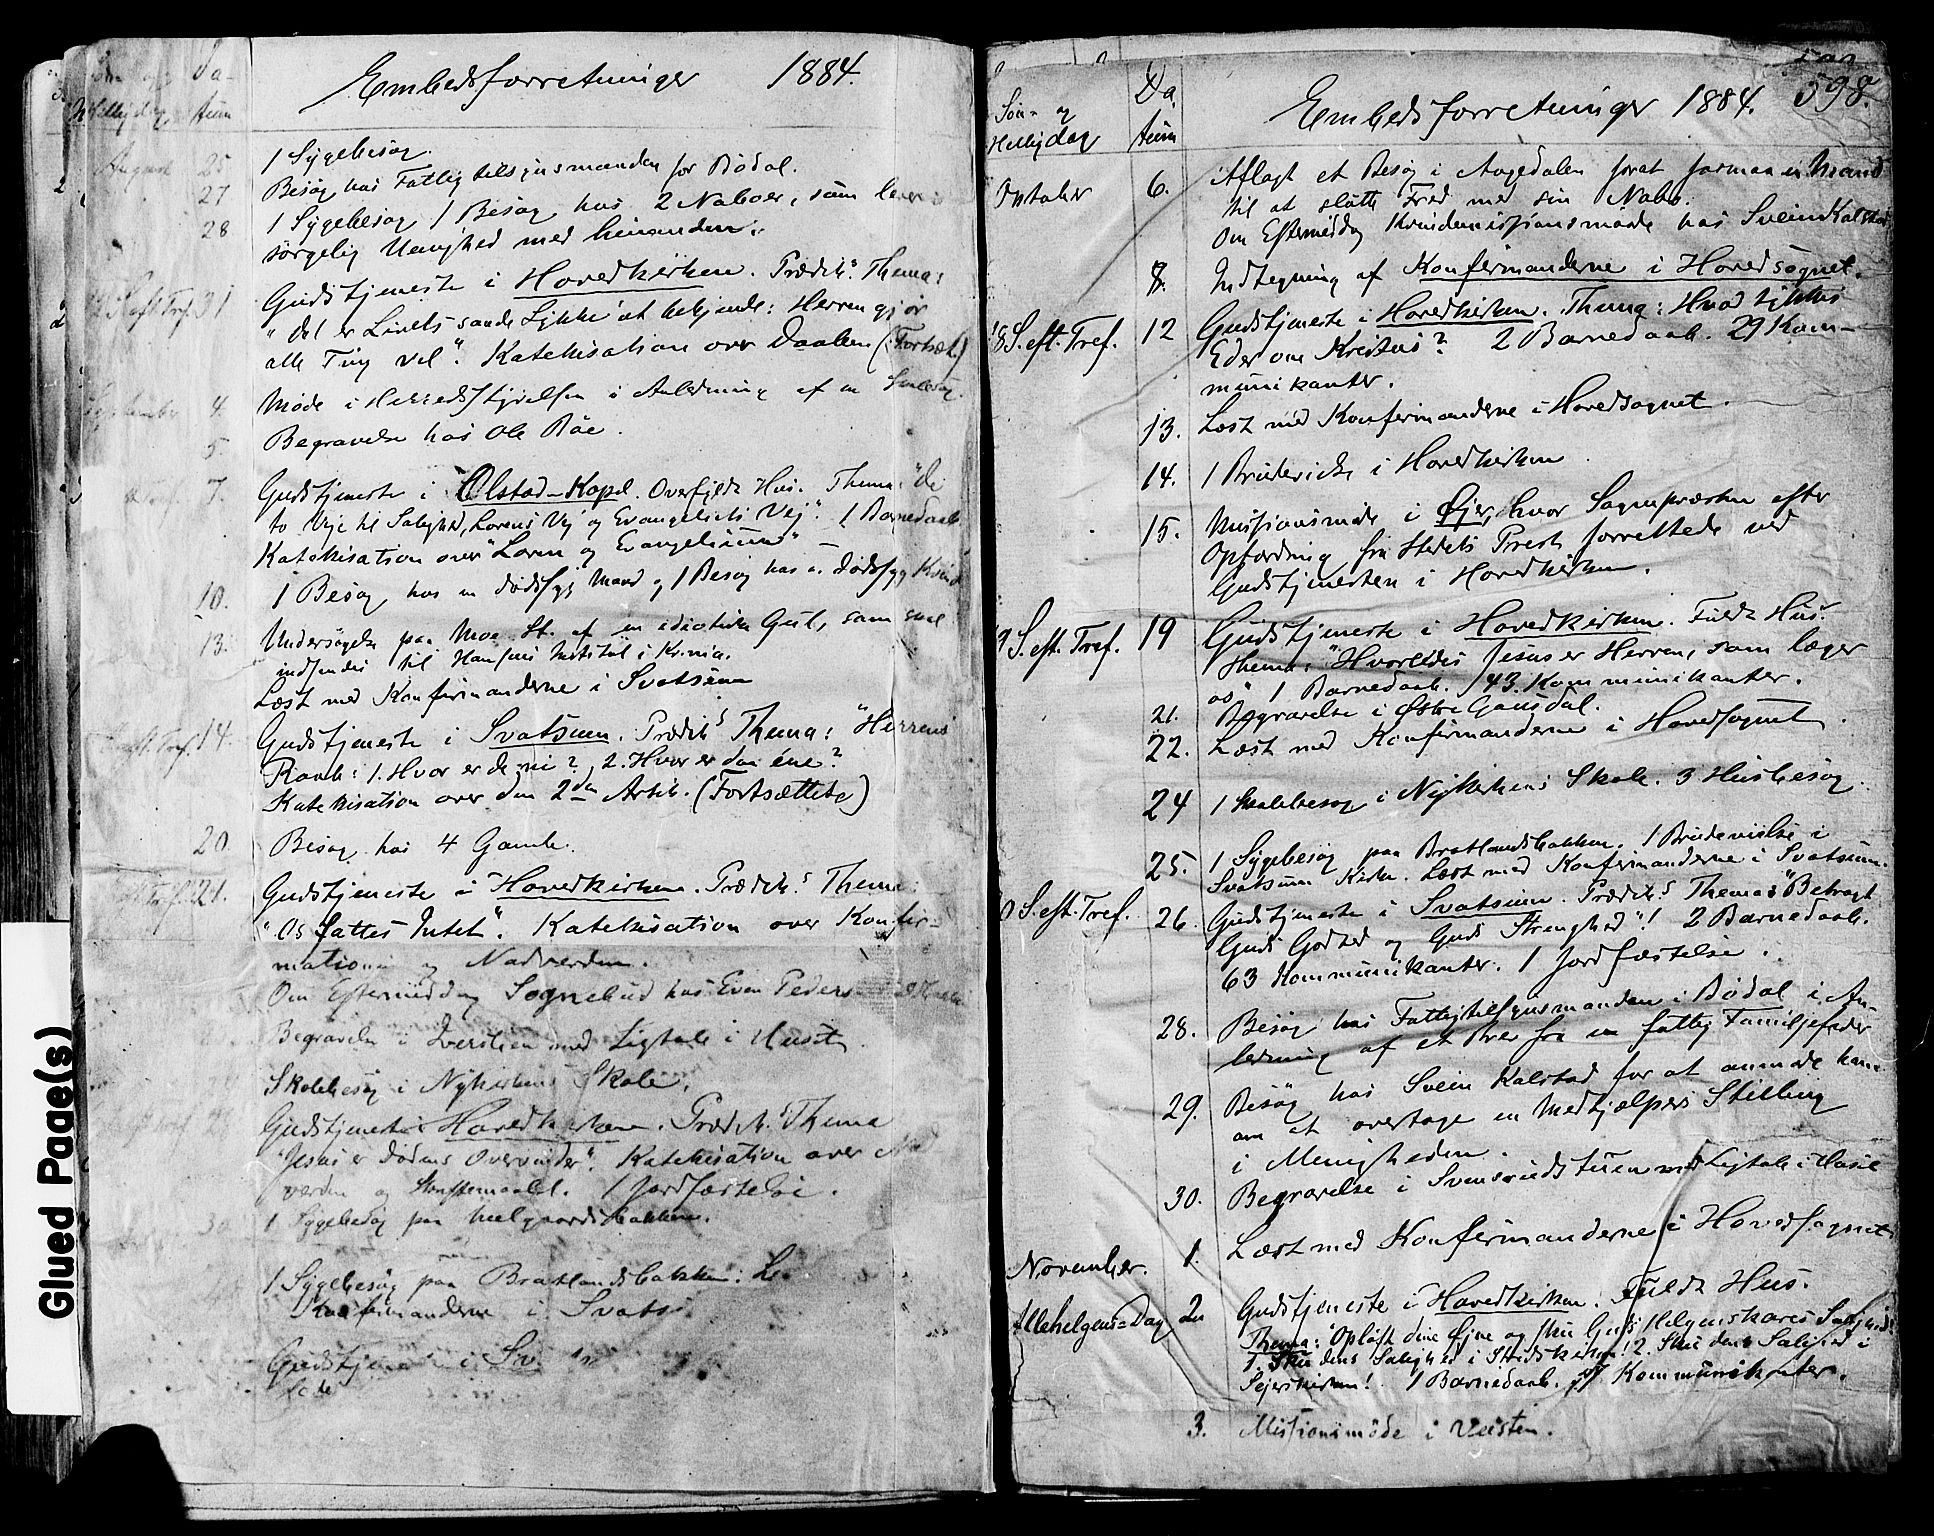 Da-
Embedsforretninger 1884.
Helligdag tum
August 25 1 Sygebesøg.
27 Besøg hos Fattigtilsynsmanden for Bødal.
28 1 Sygebesøg 1 Besøg hos 2 Naboer, som lever i
sørgelig Uenighed med hinanden.
S. eft. Tref. 31 Gudstjeneste i Hovedkirken. Prædik. Thema:
"Det er Livets sande Lykke at bekjende: Herren gjør
alle Ting vel". Katekisation over Daaben (Fortsæt.)
September 4. Møde i Herredsstyrelsen i Anledning af en
5. Begravelse hos Ole Bøe.
7. Gudstjeneste i Olstad-Kapel. Overfyldt Hus. Thema: "De
to Veje til Salighed, Lovens Vej og Evangeliets Vej". 1 Barnedaab
Katekisation over "Loven og Evangelium"
10. 1 Besøg hos en dødssyg Mand og 1 Besøg hos en dødssyg Kvinde
13. Undersøgelse paa Moe St. af en idiotisk Gut, som skal
indsendes til Hansens Institut i Krinia.
Læst med Konfirmanderne i Svatsum
S. eft. Tref. 14. Gudstjeneste i Svatsum. Prædik.s Thema: "Herrens
Rank: 1. Hvor er de ni? 2. Hvor er den ene?
Katekisation over den 2den Artik. (Fortsættelse)
20. Besøg hos 4 Gamle.
21. Gudstjeneste i Hovedkirken. Prædik.s Thema:
"Os fattes Intet". Katekisation over Konfir-
mationen og Nadverden.
Om Eftermiddag Sognebud hos Even Peders
Begravelse i med Ligtale i Huset
Skolebesøg i Nykirkens Skole.
Gudstjeneste i Hovedkirken. Prædik.s Thema
"Jesus er Dødens Overvinder". Katekisation over Nad
verden og Skriftemaalet. 1 Jordfæstelse.
30. 1 Sygebesøg paa
1 Sygebesøg paa Bratlandsbakken. Læ
Konfirmanderne i Svatsu
Gudstjene i Sv
598.
Søn- og Da
Helligdag tum
Embedsforretninger 1884.
Oktober 6. Aflagt et Besøg i Augedalen forat formaa en Mand
til at slutte Fred med sin Nabo.
Om Eftermiddag Kvindemissionsmøde hos Svein Kalstad
8. Indtegning af Konfirmanderne i Hovedsognet.
18 S. eft. Tref. 12 Gudstjeneste i Hovedkirken. Thema: Hvad tykkes
Eder om Kristus? 2 Barnedaab. 29 Kom-
munikanter.
13. Læst med Konfirmanderne i Hovedsognet.
14. 1 Brudevielse i Hovedkirken
15. Missionsmøde i Øjer, hvor Sognepræsten efter
Opfordring fra Stedets Prest forrettede ved
Gudstjenesten i Hovedkirken.
19 S. eft. Tref. 19 Gudstjeneste i Hovedkirken. Fuldt Hus.
Thema: "Hvorledes Jesus er Herren, som læger
os" 1 Barnedaab. 43 Kommunikanter.
21. Begravelse i Østre Gausdal.
22. Læst med Konfirmanderne i Hovedsognet.
24 1 Skolebesøg i Nykirkens Skole. 3 Husbesøg
25. 1 Sygebesøg paa Bratlandsbakken. 1 Brudevielse i
Svatsum Kirke. Læst med Konfirmanderne i Svatsum.
20 S. eft. Tref. 26. Gudstjeneste i Svatsum. Prædik.s Thema: "Betragt
Guds Godhed og Guds Strenghed"! 2 Barnedaab.
63 Kommunikanter. 1 Jordfæstelse.
28. Besøg hos Fattigtilsynsmanden i Bødal i An-
ledning af et Brev fra en fattig Familjefader
29. Besøg hos Svein Kalstad for at anmode ham
om at overtage en Medhjælpers Stilling
i Menigheden.
30. Begravelse i Svensrudstuen med Ligtale i Huset
November. 1. Læst med Konfirmanderne i Hovedsognet
Allehelgens-Dag 2den Gudstjeneste i Hovedkirken. Fuldt Hus.
Thema: "Opløft dine Øjne og sku Guds Helgenskares Salighed!
1. Sku dens Salighed i Stridskirken! 2. Sku dens Salighed i
Sejerskirken! 1 Barnedaab. Kommunikanter.
3. Missionsmøde i Veisten.
Glued Page(s)